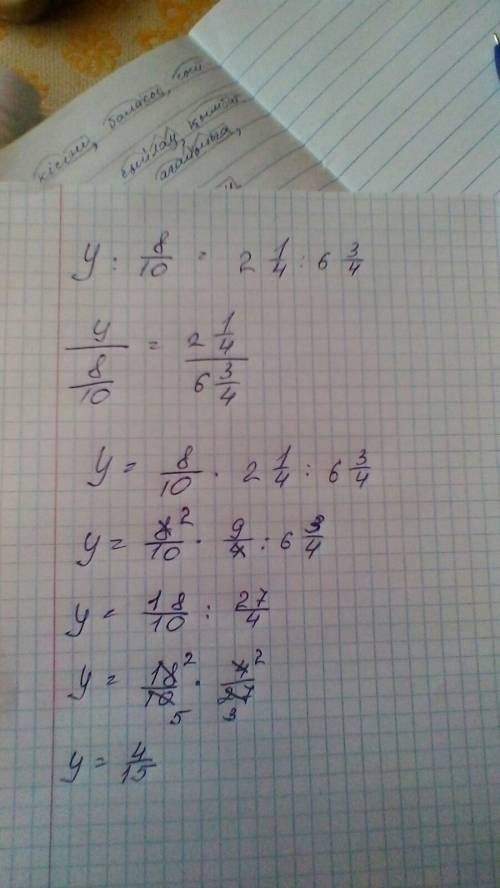 кісіні, баласы,
сыйлау, қымбат
ағайынға,
y : 8/10 = 2 1/4 : 6 3/4
y / 8/10 = 2 1/4 / 6 3/4
y = 8/10 · 2 1/4 : 6 3/4
y = 8 2/10 · 9/4 : 6 3/4
y = 18/10 : 27/4
y = 18 2/10 5 · 4 2/27 3
y = 4/15